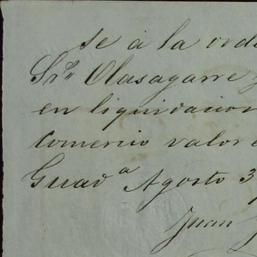 se á la orde
Srs Olasagarre y
en liquidacion
Comercio valor
Guada Agosto 3
Juan